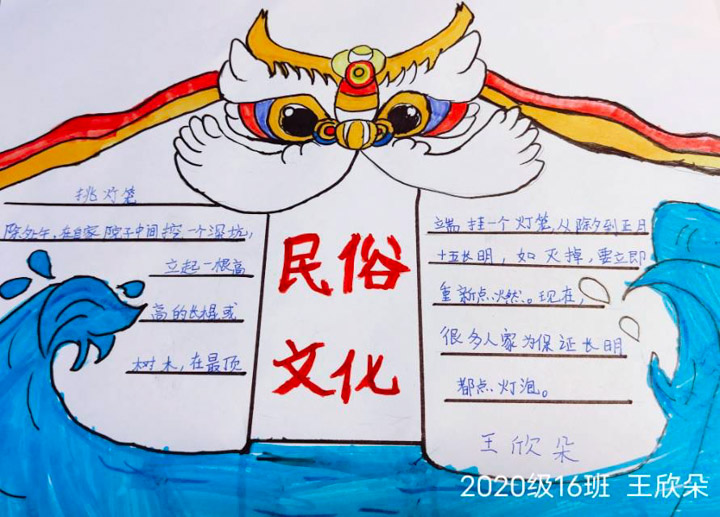 挑灯笼
除夕上午,在自家院子中间挖一个深坑,
立起一根高
高的长棍或
树木,在最顶
民俗
文化
端挂一个灯笼,从除夕到正月
十五长明,如灭掉,要立即
重新点燃。现在,
很多人家为保证长明
都点灯泡。
王欣朵
2020级16班 王欣朵